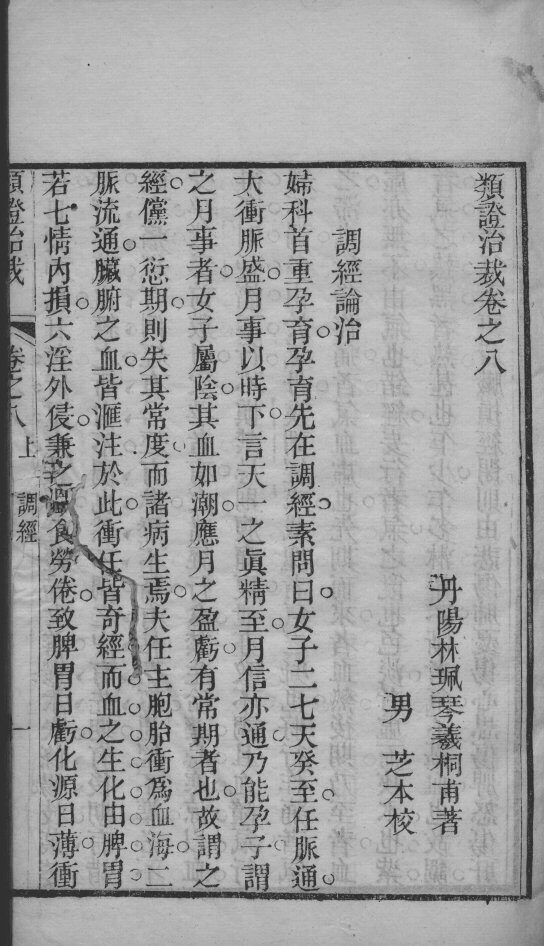 類證治裁卷之八
丹陽林珮琴羲桐甫著
男　芝本校
調經論治
婦科首重孕育孕育先在調經素問曰女子二七天癸至任脈通
大衝脈盛月事以時下言天一之眞精至月信亦通乃能孕子謂
之月事者女子屬陰其血如潮應月之盈虧有常期者也故謂之
經儻一愆期則失其常度而諸病生焉夫任主胞胎衝爲血海二
脈流通臟腑之血皆滙注於此衝任皆奇經而血之生化由脾胃
若七情內損六淫外侵兼之食勞倦致脾胃日虧化源日薄衝
類證治裁
卷之八
上
調經
一